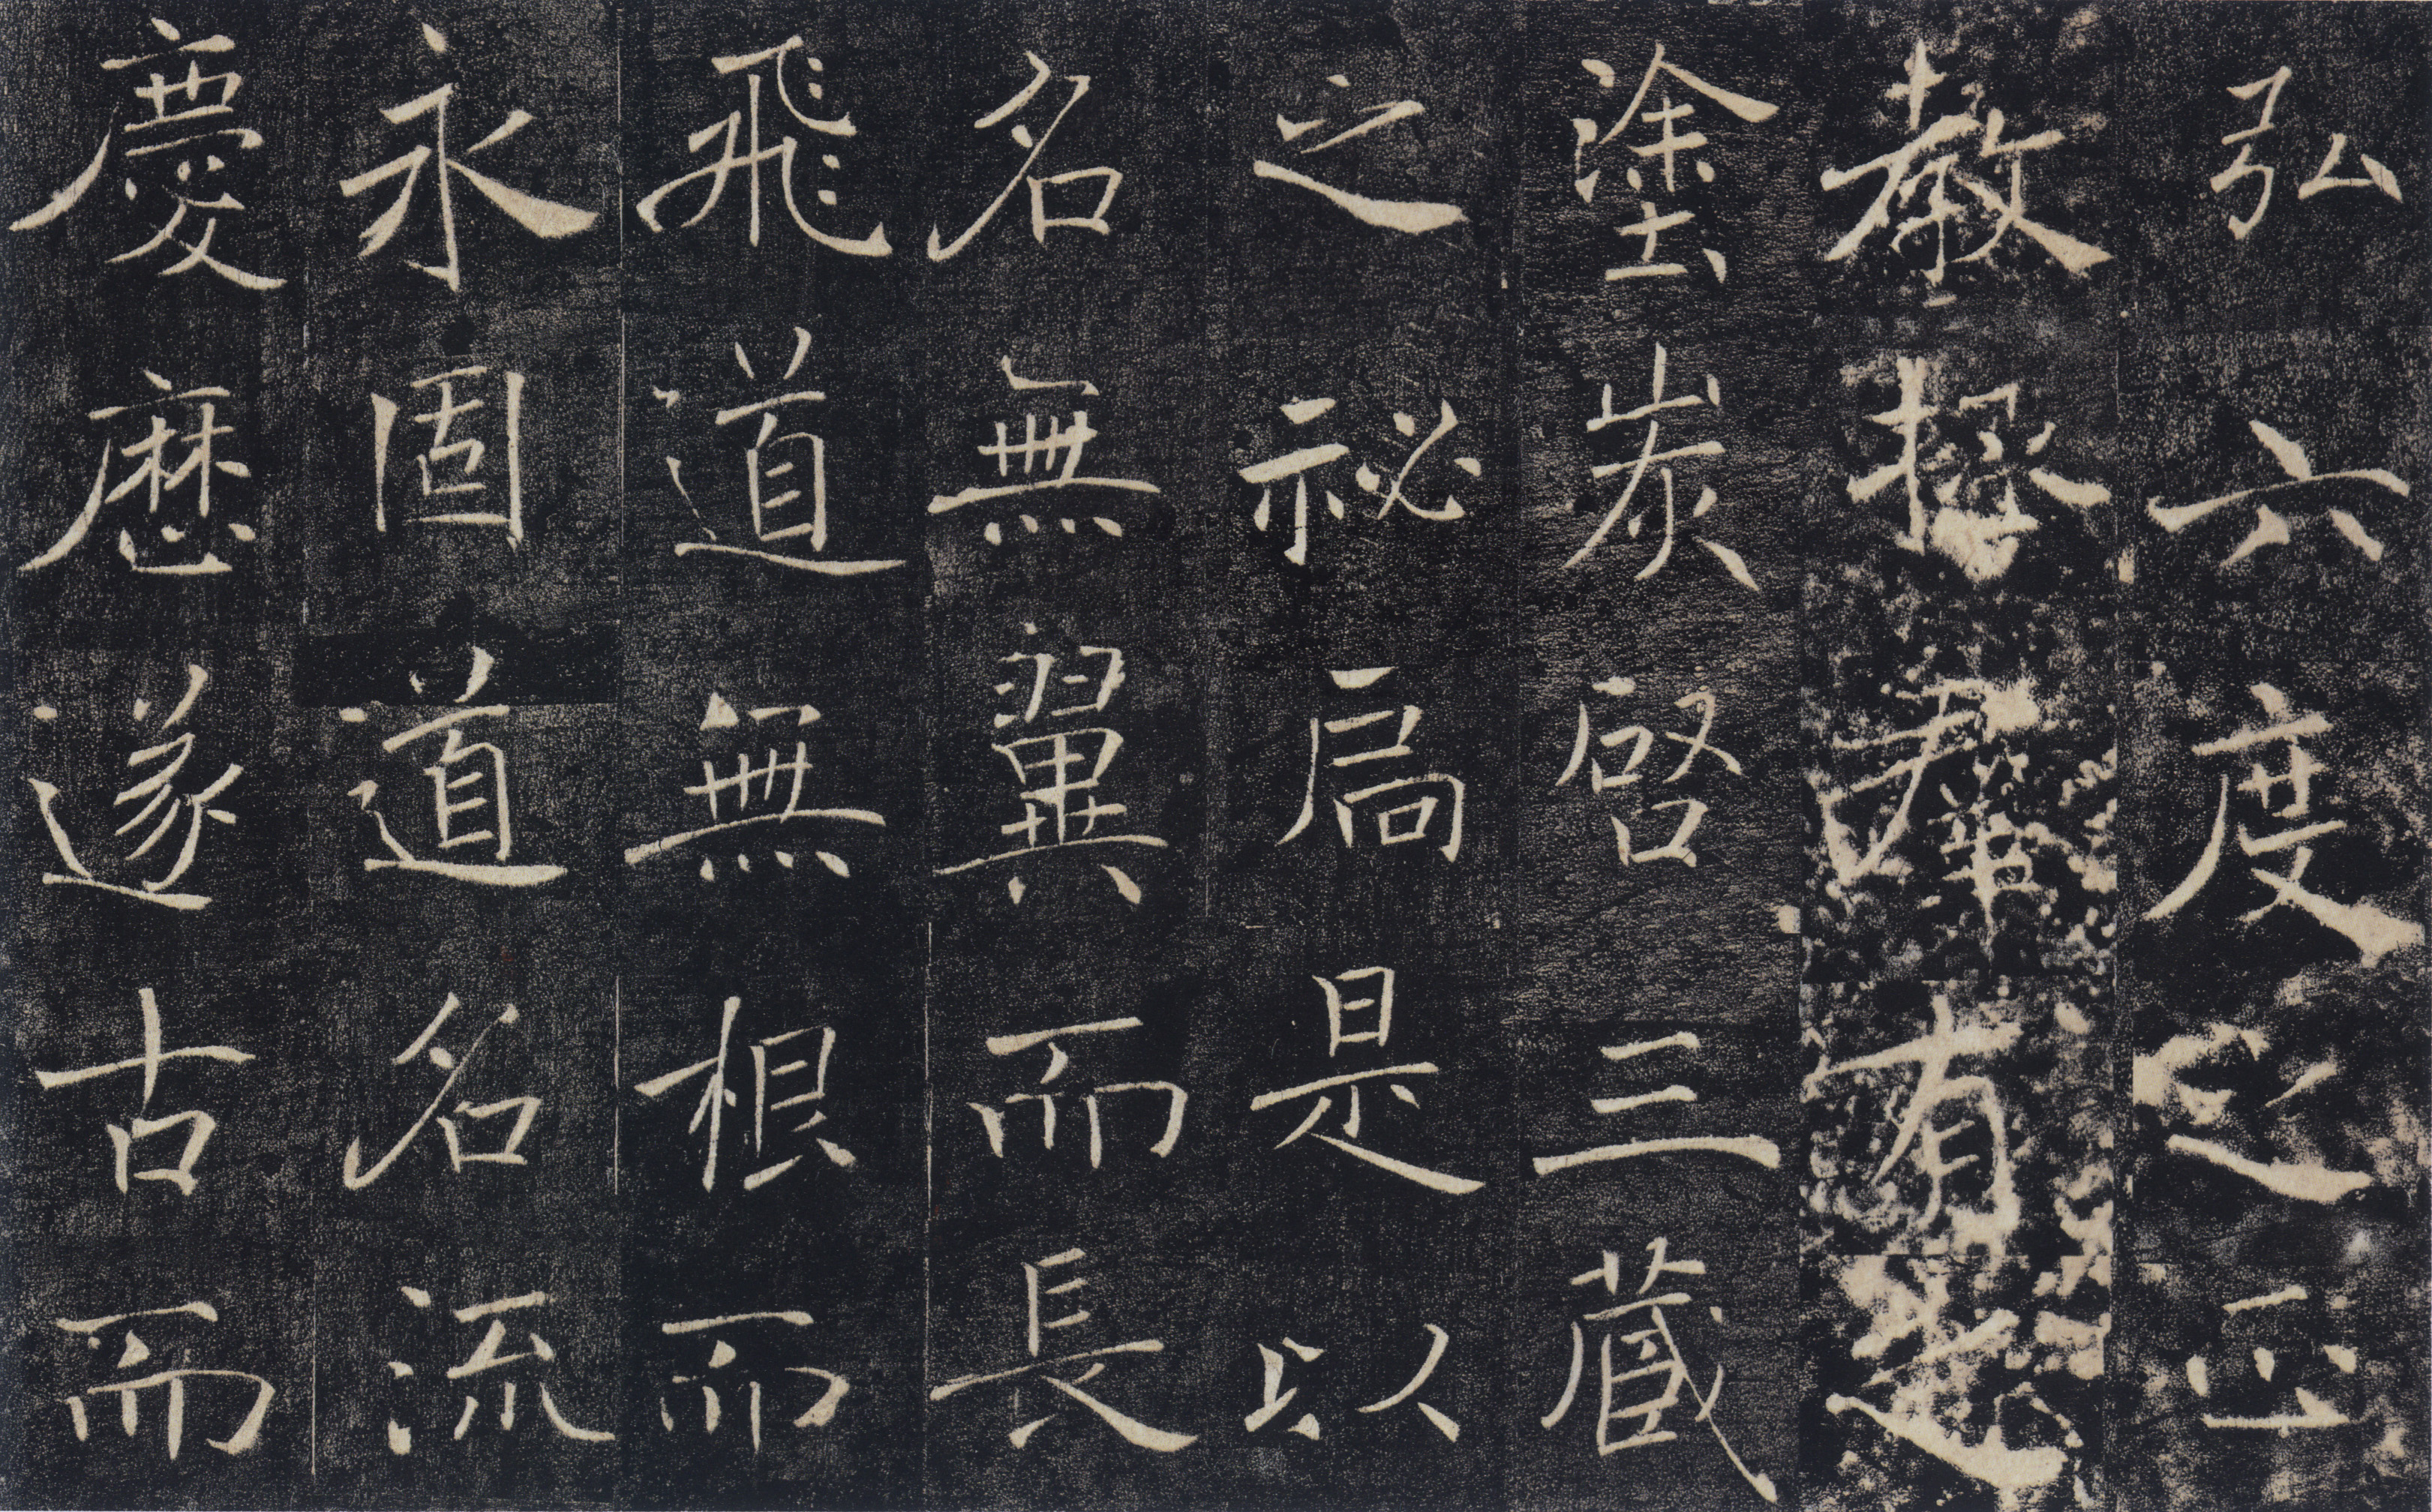 弘六度之正
教拯群有之
塗炭啓三藏
之祕扃是以
名無翼而長
飛道無根而
永固道名流
慶歷遂古而